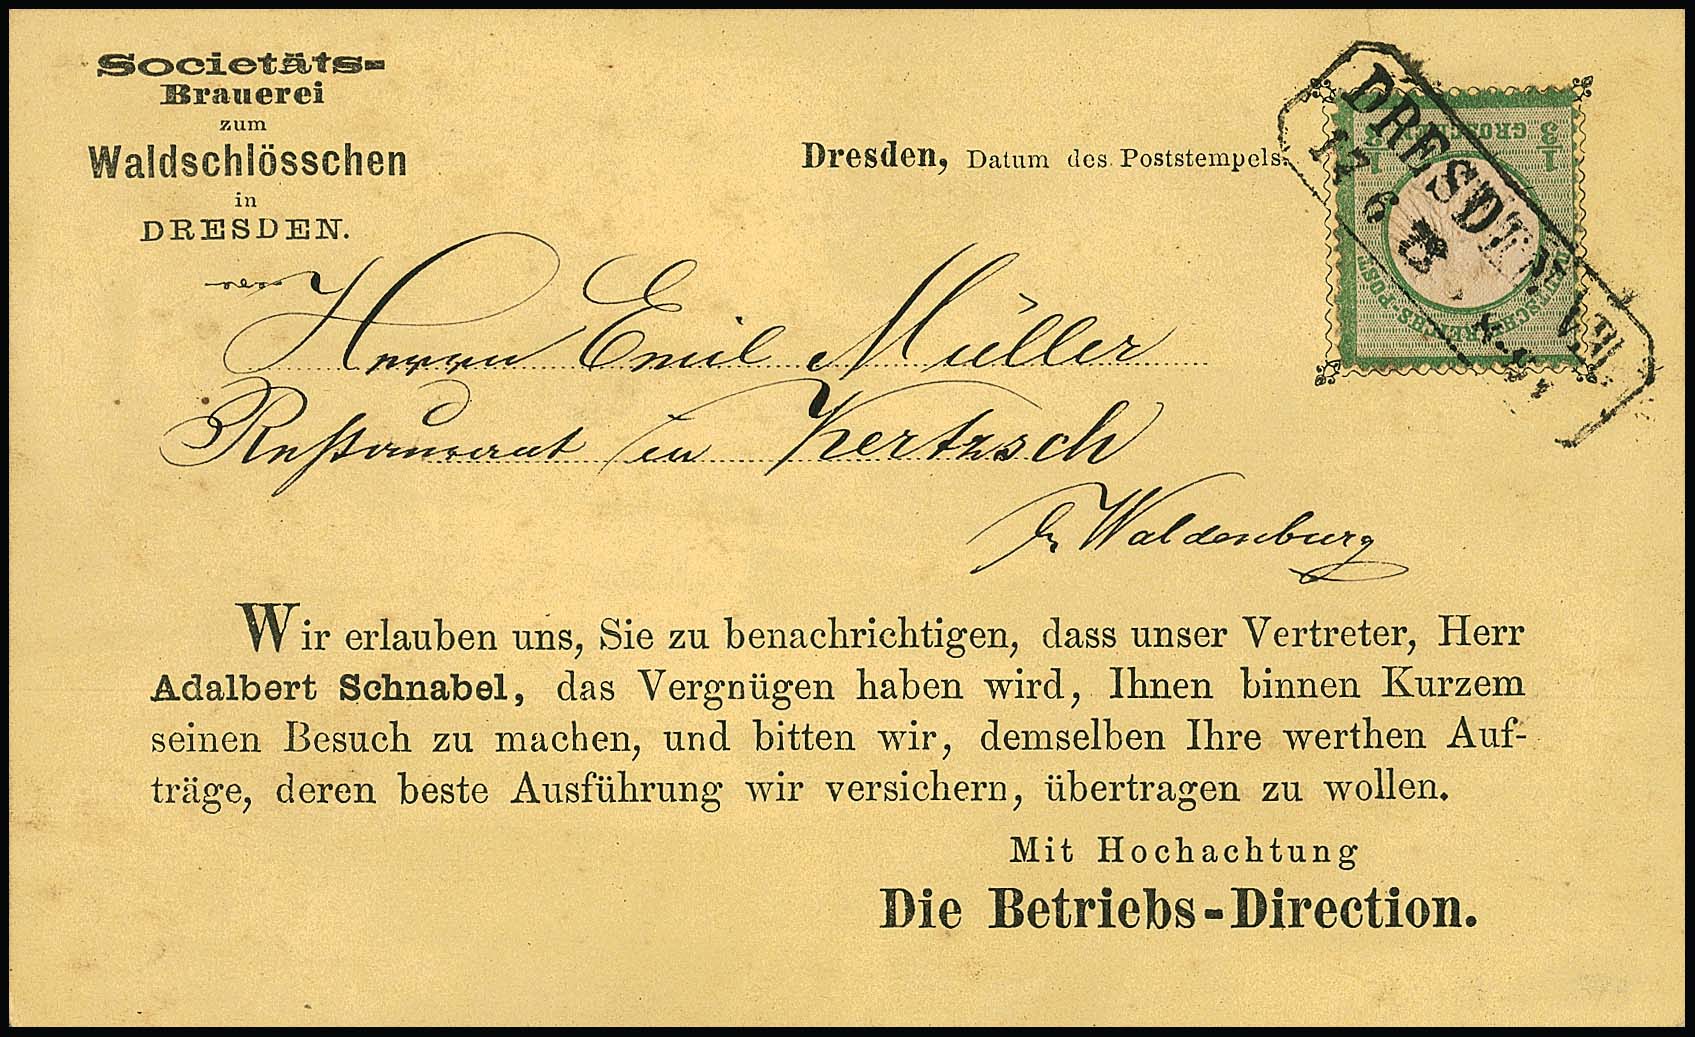 Societäts-
Brauerei
zum
Waldschlösschen
in
DRESDEN.
Dresden, Datum des Poststempels.
DRESDEN
17 6 73
1/3 1/3
GROSCHEN
DEUTSCHE REICHS-POST
Herrn Emil Müller
Restaurant in Kertzsch
b. Waldenburg
Wir erlauben uns, Sie zu benachrichtigen, dass unser Vertreter, Herr
Adalbert Schnabel, das Vergnügen haben wird, Ihnen binnen Kurzem
seinen Besuch zu machen, und bitten wir, demselben Ihre werthen Auf-
träge, deren beste Ausführung wir versichern, übertragen zu wollen.
Mit Hochachtung
Die Betriebs-Direction.